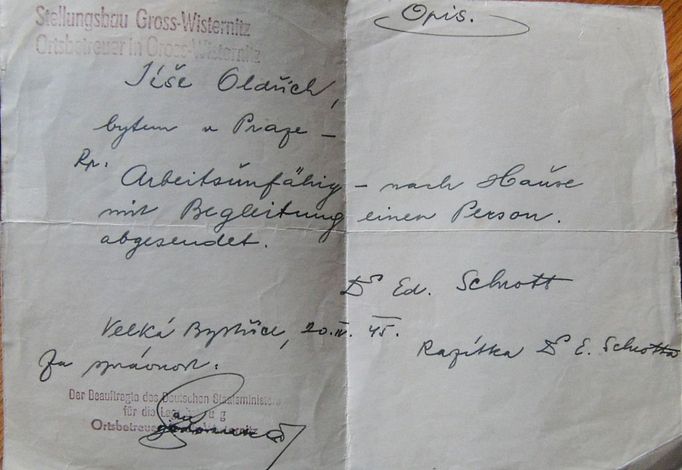 Stellungsbau Gross-Wisternitz
Ortsbetreuer in Gross-Wisternitz
Opis.
Jíše Oldřich,
bytem v Praze -
Rp.
Arbeitsunfähig - nach Hause
mit Begleitung einen Person.
abgesendet.
Dr Ed. Schrott
Velká Bystřice, 20.IV.45.
Razítka Dr E. Schrotta
Za správnost:
Der Beauftragte des Deutschen Staatsministers
für die
Ortsbetreuer